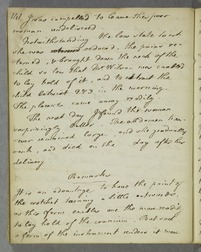 111. I was compelled to leave the poor
woman undelivered
Notwithstanding the low state to wh
she was reduced, the pains re-
turned, & brought down the neck of the
child so low that Dr. Wilson was enabled
to lay hold of it, and to extract the
child betwixt 2 & 3 in the morning.
The placenta came away readily.
The next day I found the woman
The abdomen how-
ever continued large, and she gradually
sunk, and died on the day after her
delivery
Remarks
It is an advantage to have the point of
the crotchet turning a little outwards,
as this form enables us the more readily
to lay hold of the cranium. But such
a form of the instrument renders it more